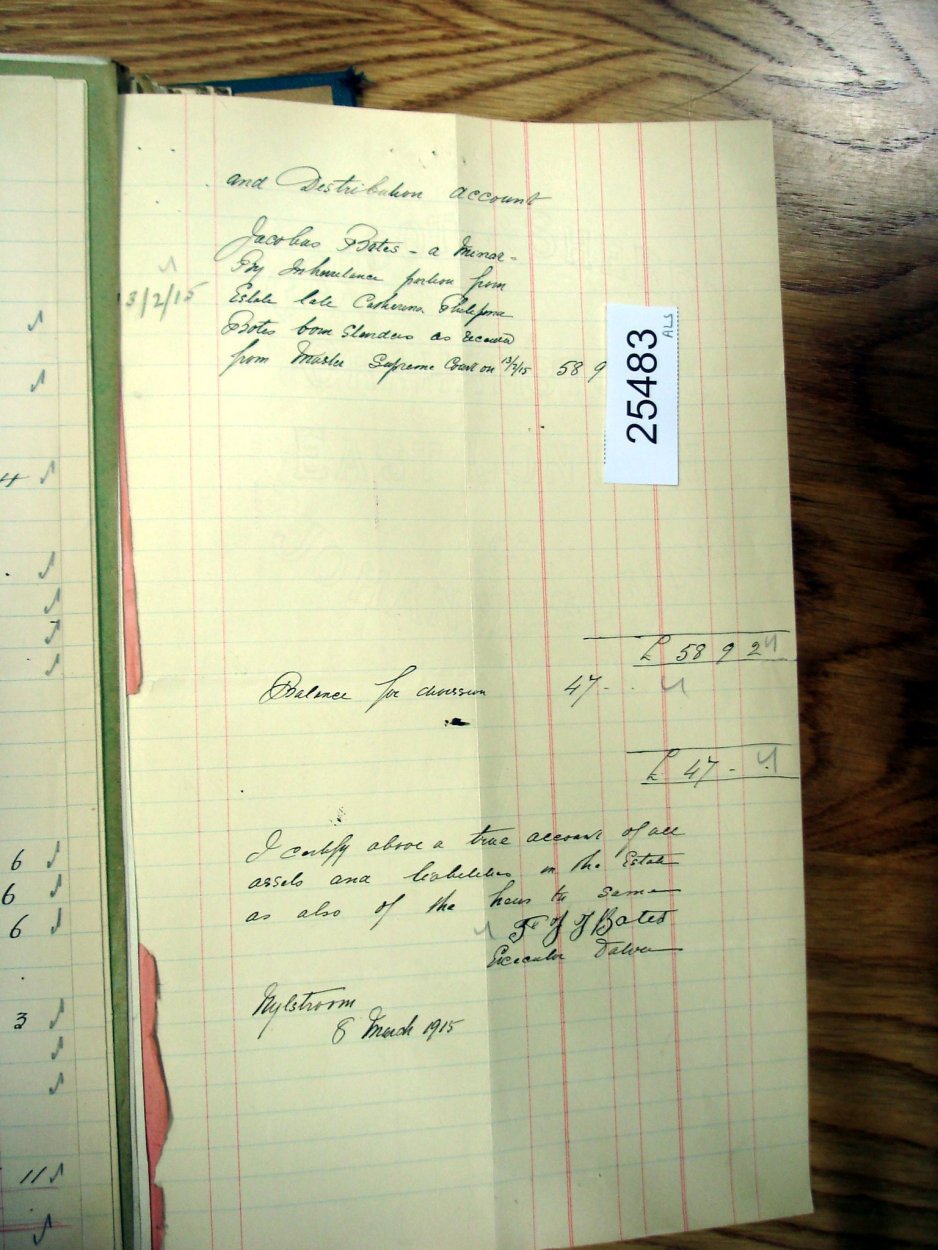 and Distribution account
Jacobus Botes - a Minor -
By Inheritance portion from
3/2/15
Estate late Catherina Philipina
Botes born as received
from Master Supreme Court on 13/2/15 58 9
25483
ALS
£ 58 9 2
Balance for division 47 - -
£ 47 - -
I certify above a true account of all
assets and liabilities in the Estate
as also of the heirs to same
Botes
Executor Dative
Nylstroom
8 March 1915
4
6
6
6
3
11